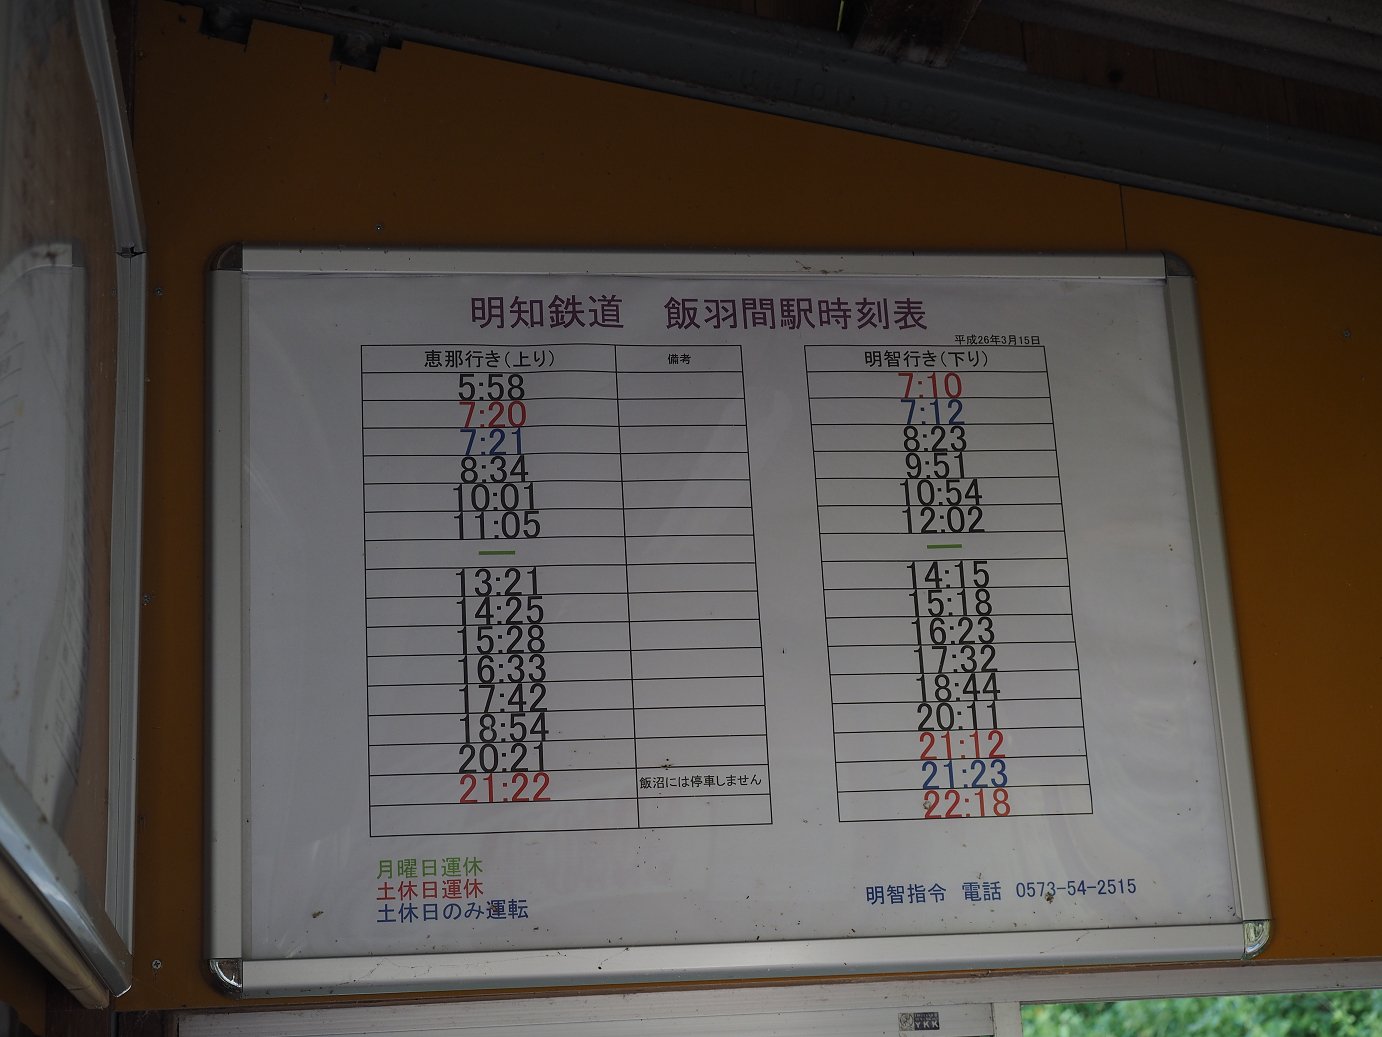 明知鉄道　飯羽間駅時刻表
平成26年3月15日
恵那行き(上り)　備考
5:58
7:20
7:21
8:34
10:01
11:05
—
13:21
14:25
15:28
16:33
17:42
18:54
20:21
21:22　飯沼には停車しません
明智行き(下り)
7:10
7:12
8:23
9:51
10:54
12:02
—
14:15
15:18
16:23
17:32
18:44
20:11
21:12
21:23
22:18
月曜日運休
土休日運休
土休日のみ運転
明智指令　電話　0573-54-2515
YKK